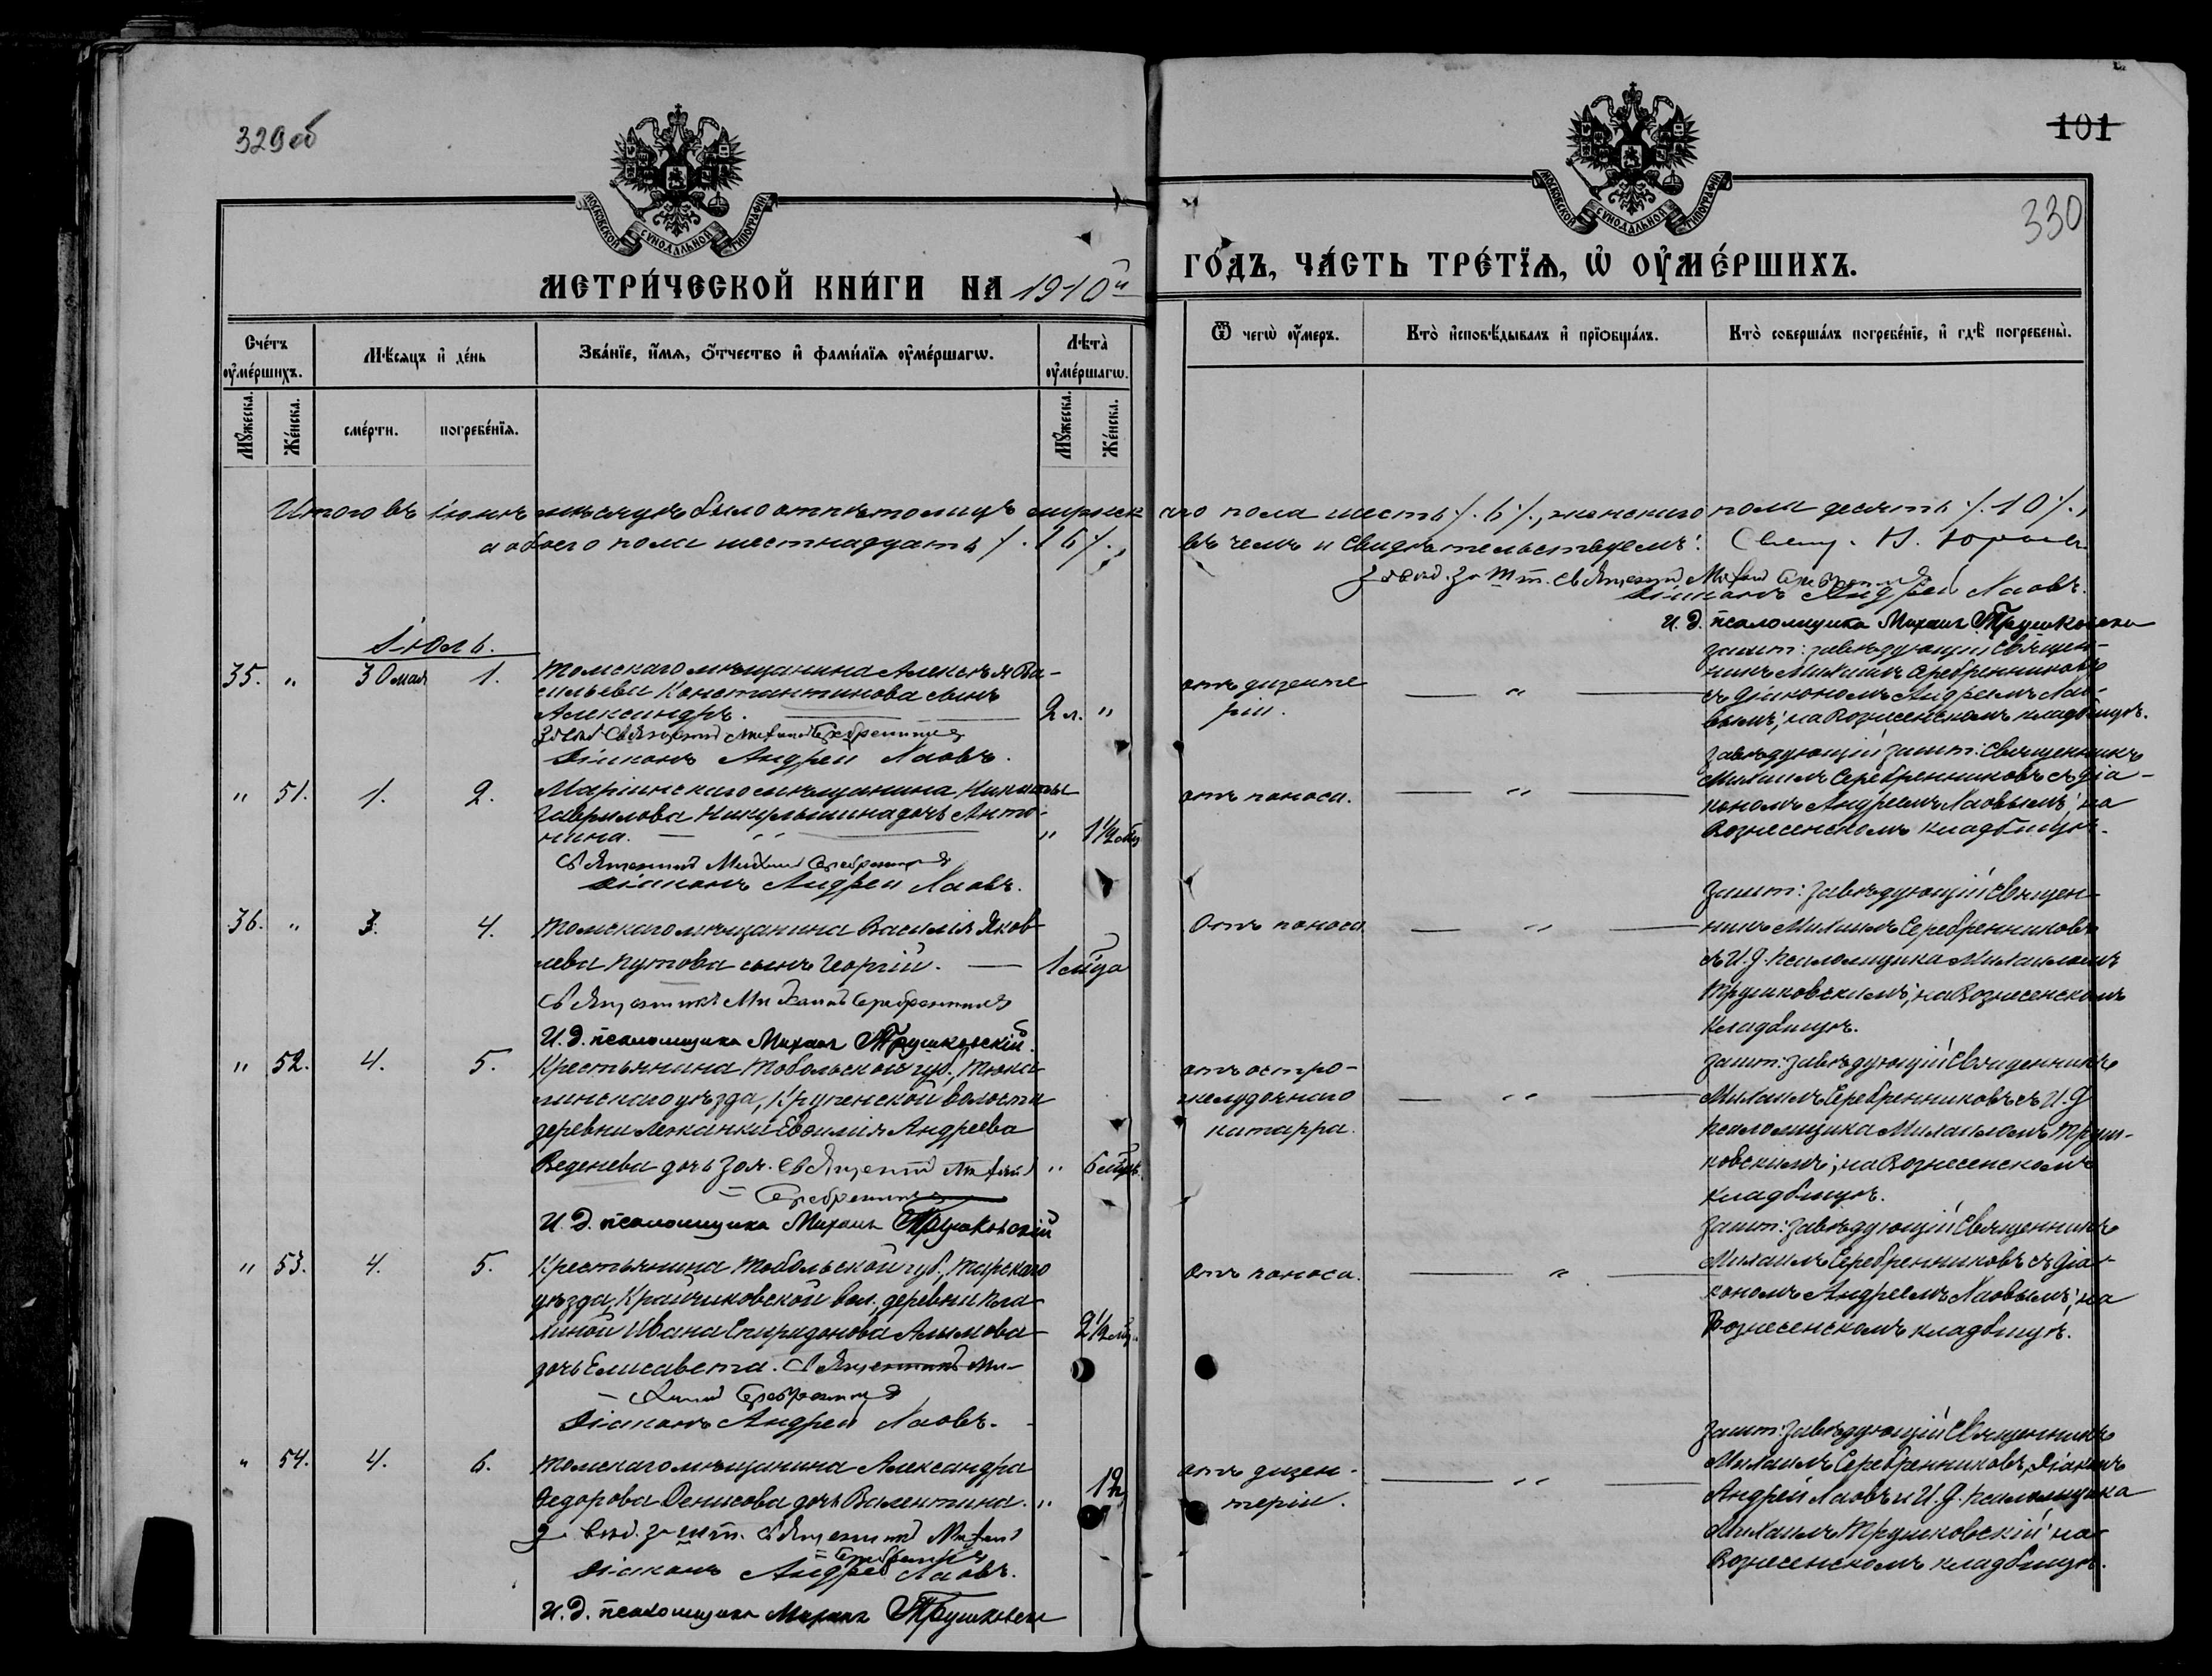 329об
МОСКОВСКОЙ СУНОДАЛЬНОЙ ТИПОГРАФІИ
МЕТРИ́ЧЕСКОЙ КНИ́ГИ НА 1910й
Сче́тъ оу҆ме́ршихъ.
Мѣ́сяцъ и҆ де́нь
Зва́нїе, и҆́мѧ, ѻ҆́тчество и҆ фами́лїѧ оу҆ме́ршагѡ.
Лѣ́та оу҆ме́ршагѡ.
Мꙋ́жеска.
Же́нска.
сме́рти.
погребе́нїѧ.
Мꙋ́жеска.
Же́нска.
Итого въ іюнѣ мѣсяцѣ было отпѣто лицъ мужск
а обоего пола шестнадцать /. 16 /.,
Іюль.
35. " 30 мая 1. Томскаго мѣщанина Алексѣя Ва-
сильева Константинова сынъ
Александръ. 2 л. "
Священникъ Михаилъ Серебренниковъ
Діаконъ Андрей Лаовъ.
" 51. 1. 2. Маріинскаго мѣщанина Никиты
Гаврилова Никульшина дочь Анто-
нина. " 1½ мѣс.
Священникъ Михаилъ Серебренниковъ
Діаконъ Андрей Лаовъ.
36. " 3. 4. Томскаго мѣщанина Василія Яков
лева Путова сынъ Георгій. 1 мѣсяца
Священникъ Михаилъ Серебренниковъ
И. д. псаломщика Михаилъ Трушковскій.
" 52. 4. 5. Крестьянина Тобольской губ., Тюка-
линскаго уѣзда, Крутенской волости
деревни Лежанки Евфимія Андреева
Веденева дочь Зоя. Священникъ Михаилъ " 6 мѣсяц.
= Серебренниковъ
И. д. псаломщика Михаилъ Трушковскій
" 53. 4. 5. Крестьянина Тобольской губ., Тарскаго
уѣзда, Крайчиковской вол., деревни Пла-
хиной Ивана Спиридонова Алымова 2½ мѣс.
дочь Елисавета. Священникъ Ми-
- хаилъ Серебренниковъ
Діаконъ Андрей Лаовъ.
" 54. 4. 6. Томскаго мѣщанина Александра
Федорова Денисова дочь Валентина. " 1 г.
Завѣд. зашт. Священникъ Михаилъ
= Серебренниковъ
Діаконъ Андрей Лаовъ.
И. д. псаломщика Михаилъ Трушковскій
101
330
МОСКОВСКОЙ СУНОДАЛЬНОЙ ТИПОГРАФІИ
ГО́ДЪ, ЧА́СТЬ ТРЕ́ТЇѦ, Ѡ҆ ОУ҆МЕ́РШИХЪ.
Ѿ чегѡ̀ оу҆́меръ.
Кто̀ и҆сповѣ́дывалъ и҆ прїѡбща́лъ.
Кто̀ соверша́лъ погребе́нїе, и҆ гдѣ̀ погребены̀.
аго пола шесть /. 6 /., женскаго пола десять /. 10 /.,
въ чемъ и свидѣтельствуемъ: Свящ. Н.
Завѣд. зашт. Священникъ Михаилъ Серебренниковъ
Діаконъ Андрей Лаовъ.
И. д. псаломщика Михаилъ Трушковскій
отъ дизенте
ріи. "
зашт: завѣдующій Священ-
никъ Михаилъ Серебренниковъ
съ діакономъ Андреемъ Лао-
вымъ; на Вознесенскомъ кладбищѣ.
отъ поноса. "
завѣдующій зашт: Священникъ
Михаилъ Серебренниковъ съ діа-
кономъ Андреемъ Лаовымъ; на
Вознесенскомъ кладбищѣ.
Отъ поноса "
Зашт: завѣдующій Священ-
никъ Михаилъ Серебренниковъ
съ И. д. псаломщика Михаиломъ
Трушковскимъ; на Вознесенскомъ
кладбищѣ.
отъ остро-
желудочнаго
катарра. "
зашт: завѣдующій Священникъ
Михаилъ Серебренниковъ съ И. д
псаломщика Михаиломъ Труш-
ковскимъ; на Вознесенскомъ
кладбищѣ.
Отъ поноса. "
зашт: завѣдующій Священникъ
Михаилъ Серебренниковъ съ діа-
кономъ Андреемъ Лаовымъ; на
Вознесенскомъ кладбищѣ.
отъ дизен-
теріи. "
зашт: завѣдующій Священникъ
Михаилъ Серебренниковъ, діаконъ
Андрей Лаовъ и И. д. псаломщика
Михаилъ Трушковскій на
Вознесенскомъ кладбищѣ.